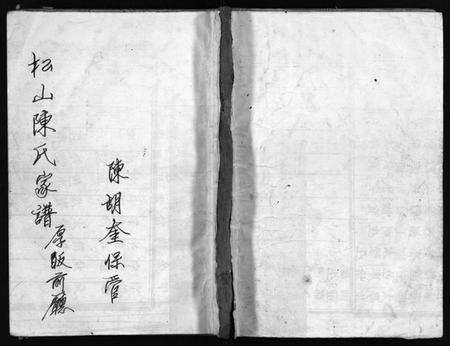 陳胡奎保管
松山陳氏家譜原版前廳